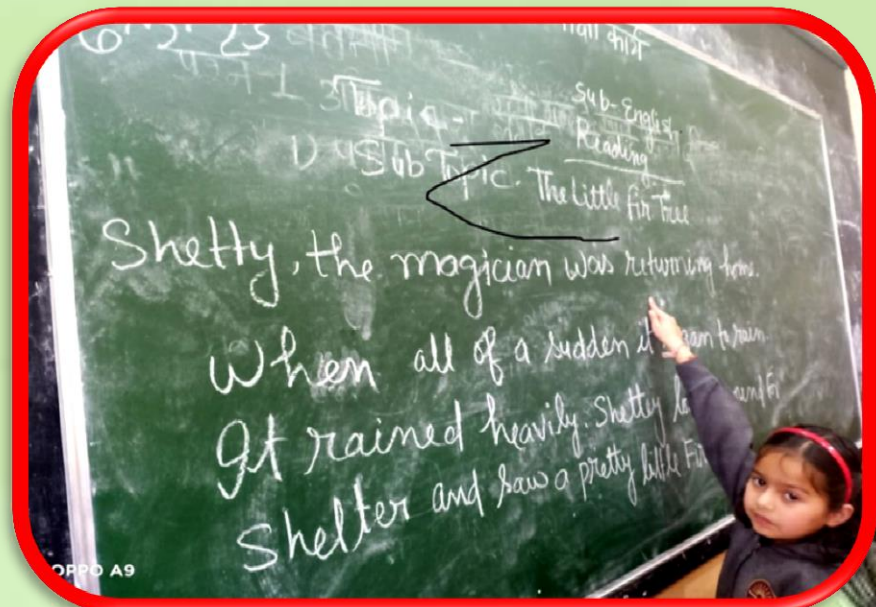 कार्य
Sub-English
Topic- Reading
Sub Topic. The Little Fir Tree
Shetty, the magician was returning home.
When all of a sudden it began to rain.
It rained heavily. Shettey
Shelter and saw a pretty little Fir
OPPO A9